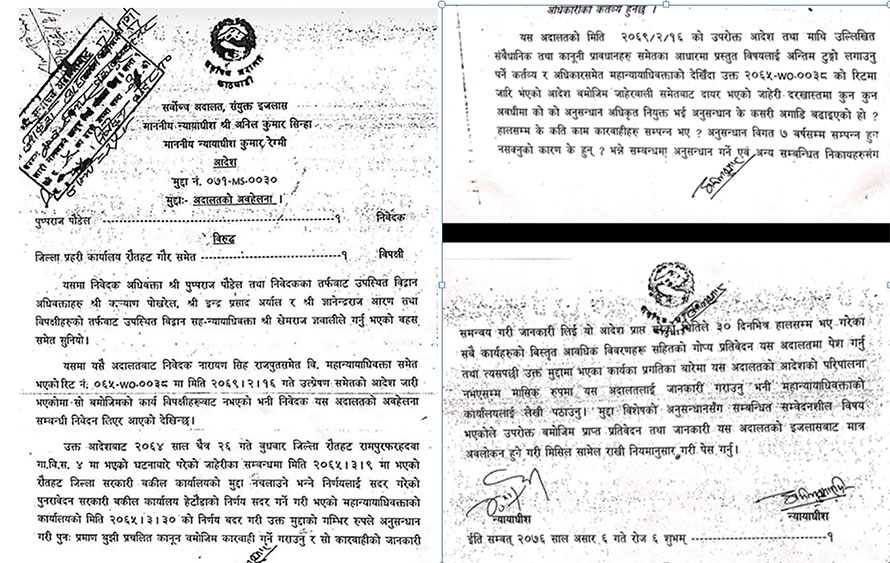 सर्वोच्च अदालत
काठमाडौं
सर्वोच्च अदालत, संयुक्त इजलास
माननीय न्यायाधीश श्री अनिल कुमार सिन्हा
माननीय न्यायाधीश कुमार रेग्मी
आदेश
मुद्दा नं. ०७१-MS-००३०
मुद्दाः- अदालतको अवहेलना ।
पुष्पराज पौडेल ----------------------------------१ निवेदक
विरुद्ध
जिल्ला प्रहरी कार्यालय रौतहट गौर समेत --------------------१ विपक्षी
यसमा निवेदक अधिवक्ता श्री पुष्पराज पौडेल तथा निवेदकका तर्फबाट उपस्थित विद्वान
अधिवक्ताहरु श्री कल्याण पोखरेल, श्री इन्द्र प्रसाद अर्याल र श्री ज्ञानेन्द्रराज आरण तथा
विपक्षीहरुको तर्फबाट उपस्थित विद्वान सह-न्यायाधिवक्ता श्री खेमराज ज्ञवालीले गर्नु भएको बहस
समेत सुनियो ।
यसमा यसै अदालतबाट निवेदक नारायण सिंह राजपुतसमेत वि. महान्यायाधिवक्ता समेत
भएको रिट नं. ०६५-WO-००३८ मा मिति २०६९।२।१६ गते उत्प्रेषण समेतको आदेश जारी
भएकोमा सो बमोजिमको कार्य विपक्षीहरुबाट नभएको भनी निवेदक यस अदालतको अवहेलना
सम्बन्धी निवेदन लिएर आएको देखिन्छ ।
उक्त आदेशबाट २०६४ साल चैत्र २६ गते बुधवार जिल्ला रौतहट रामपुरफरहदवा
गा.बि.स. ४ मा भएको घटनाबारे परेको जाहेरीका सम्बन्धमा मिति २०६५।३।९ मा भएको
रौतहट जिल्ला सरकारी वकील कार्यालयको मुद्दा नचलाउने भन्ने निर्णयलाई सदर गरेको
पुनरावेदन सरकारी वकील कार्यालय हेटौडाको निर्णय सदर गर्ने गरी भएको महान्यायाधिवक्ताको
कार्यालयको मिति २०६५।३।३० को निर्णय बदर गरी उक्त मुद्दाको गम्भिर रुपले अनुसन्धान
गरी पुनः प्रमाण बुझी प्रचलित कानून बमोजिम कारवाही गर्ने गराउनु र सो कारवाहीको जानकारी
अधिकारीको कर्तव्य हुनछ ।
यस अदालतको मिति २०६९/२/१६ को उपरोक्त आदेश तथा माथि उल्लिखित
संबैधानिक तथा कानूनी प्रावधानहरु समेतका आधारमा प्रस्तुत विषयलाई अन्तिम टुङ्गो लगाउनु
पर्ने कर्तव्य र अधिकारसमेत महान्यायाधिवक्ताको देखिँदा उक्त २०६५-WO-००३८ को रिटमा
जारि भएको आदेश बमोजिम जाहेरवाली समेतबाट दायर भएको जाहेरी दरखास्तमा कुन कुन
अवधीमा को को अनुसन्धान अधिकृत नियुक्त भई अनुसन्धान के कसरी अगाडि बढाइएको हो ?
हालसम्म के कति काम कारवाहीहरु सम्पन्न भए ? अनुसन्धान विगत ७ वर्षसम्म सम्पन्न हुन
नसक्नुको कारण के हुन् ? भन्ने सम्बन्धमा अनुसन्धान गर्ने एवं अन्य सम्बन्धित निकायहरुसंग
समन्वय गरी जानकारी लिई यो आदेश प्राप्त मितिले ३० दिनभित्र हालसम्म भए गरेका
सबै कार्यहरुको बिस्तृत आवधिक विवरणहरू सहितको गोप्य प्रतिवेदन यस अदालतमा पेश गर्नु
तथा त्यसपछी उक्त मुद्दामा भएका कार्यका प्रगतिका बारेमा यस अदालतको आदेशको परिपालना
नभएसम्म मासिक रुपमा यस अदालतलाई जानकारी गराउनु भनी महान्यायाधिवक्ताको
कार्यालयलाई लेखी पठाउनु । मुद्दा बिशेषको अनुसन्धानसँग सम्बन्धित सम्वेदनशील विषय
भएकोले उपरोक्त बमोजिम प्राप्त प्रतिवेदन तथा जानकारी यस अदालतको इजलासबाट मात्र
अवलोकन हुने गरी मिसिल सामेल राखी नियमानुसार गरी पेस गर्नु ।
न्यायाधीश न्यायाधीश
ईति सम्बत् २०७६ साल असार ६ गते रोज ६ शुभम् ---------------------------१